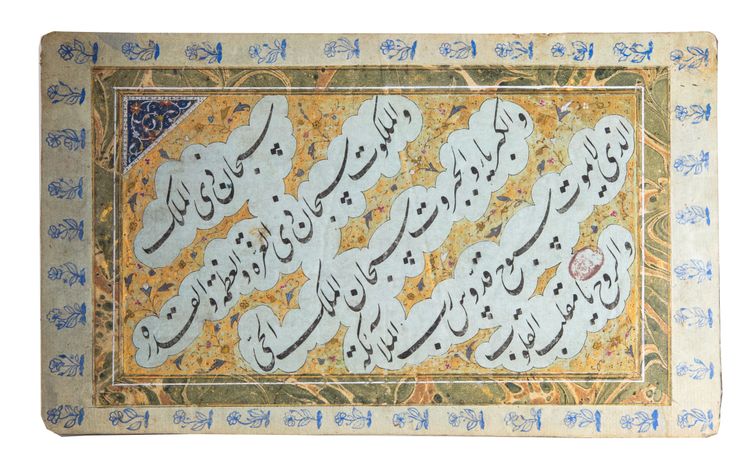 سبحان ذی الملک
والملکوت سبحان ذی العزة والعظمه والقدره
والکبریاء والجبروت سبحان الملک الحی
الذی لایموت سبوح قدوس رب الملائکة
والروح یا مقلب القلوب